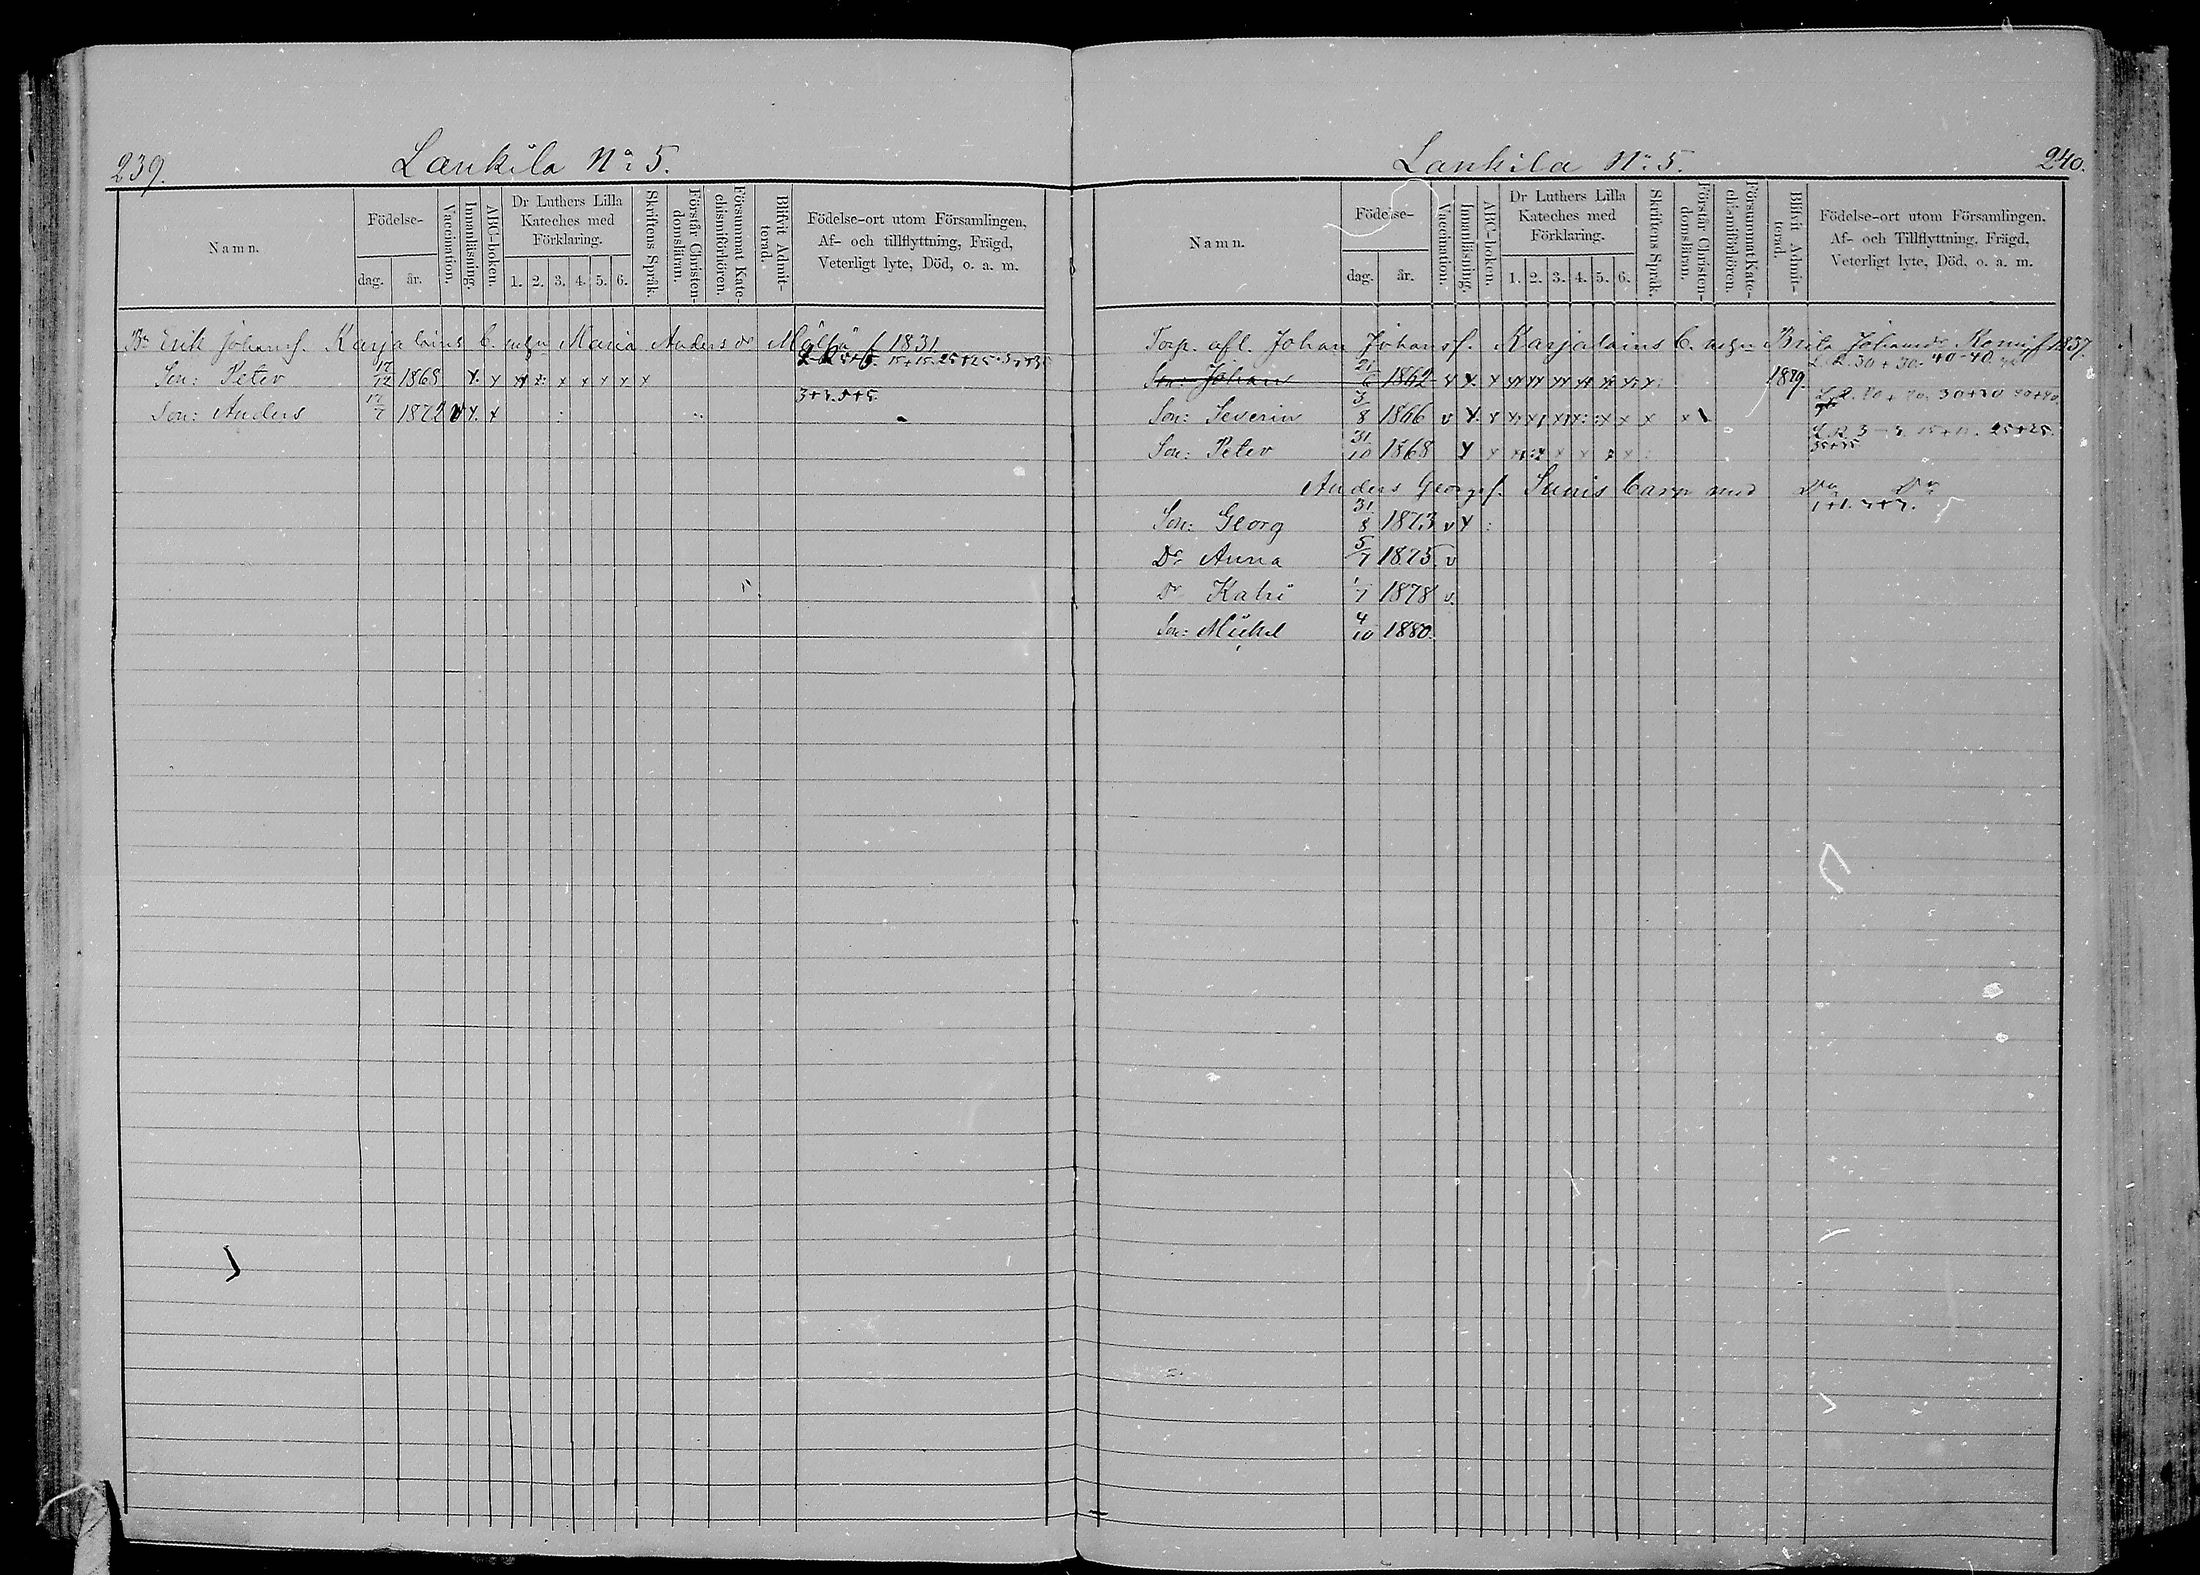 239.
Lankila No 5.
Namn.
Födelse-
dag.
år.
Vaccination.
Innanläsning.
ABC-boken.
Dr Luthers Lilla
Kateches med
Förklaring.
1. 2. 3. 4. 5. 6.
Skriftens Språk.
Förstår Christen-
domsläran.
Försummat Kate-
chismiförhören.
Blifvit Admit-
terad.
Födelse-ort utom Församlingen,
Af- och tillflyttning, Frägd,
Veterligt lyte, Död, o. a. m.
Erik Johansf. Karjalains b. m Maria Anders dr 1831
Son: Peter 17/12 1868 x. x x x x x x x
3+3. 5+5.
Son: Anders 17/7 1872 v x. x
Lankila No 5.
240.
Namn.
Födelse-
dag.
år.
Vaccination.
Innanläsning.
ABC-boken.
Dr Luthers Lilla
Kateches med
Förklaring.
1. 2. 3. 4. 5. 6.
Skriftens Språk.
Förstår Christen-
domsläran.
Försummat Kate-
chismiförhören.
Blifvit Admit-
terad.
Födelse-ort utom Församlingen,
Af- och Tillflyttning, Frägd,
Veterligt lyte, Död, o. a. m.
Torp. afl. Johan Johansf. Karjalains b. m Brita Johans dr 1837.
L. R. 30+30. 40-40
Son: Johan 21/6 1862 1879.
Son: Severin 3/8 1866 v x.
Son: Peter 31/10 1868 x
35+35
Anders Georgsf. Sunis barn med Do Do
1+1. 3+3.
Son: Georg 31/8 1873 v x :
Dr Anna 5/7 1875. v
Dr Katri 1/7 1878 v.
Son: Mickel 4/10 1880.